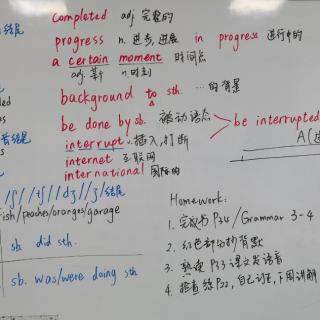 completed adj 完整的
progress n. 进步,进展 in progress 进行中的
a certain moment 时间点
adj. 某个 n. 时刻
background to sth. …的背景
be done by sb. 被动语态
be interrupted
interrupt v. 插入,打断
internet 互联网
international 国际的
结尾
/ʃ/ /tʃ/ /dʒ/ /ʒ/ 结尾
ish/peaches/oranges/garage
sb. did sth.
sb. was/were doing sth
Homework:
1. 完成书P34/Grammar 3-4
2. 红色部分抄背默
3. 熟读P33课文发语音
4. 检查练P22,自己订正,下周讲解